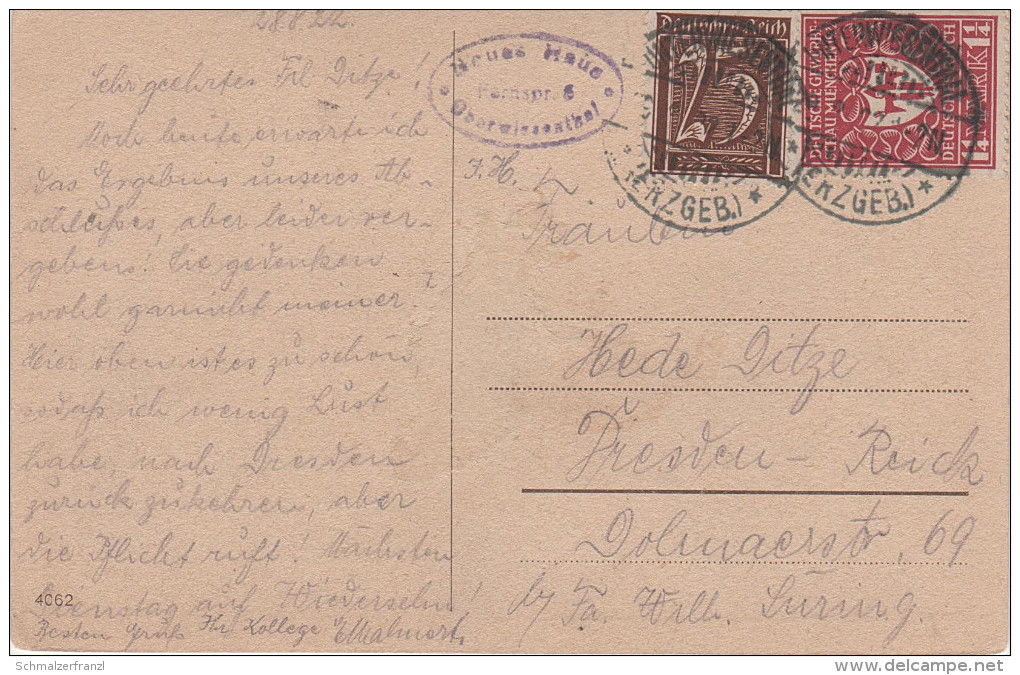 28.8.22.
Sehr geehrtes Frl Ditze!
Noch heute erwarte ich
das Ergebnis unseres Ab-
schlußes, aber leider ver-
gebens! Sie gedenken
wohl garnicht meiner?
Hier oben ist es zu schön,
sodaß ich wenig Lust
habe, nach Dresden
zurück zukehren, aber
die Pflicht ruft! Nächsten
Dienstag auf Wiedersehn!
Besten Gruß Ihr Kollege
4062
Neues Haus
Fernspr. 6
Oberwiesenthal
Deutsches Reich
75
DEUTSCHE GEWERBESCHAU MÜNCHEN
DEUTSCHES REICH
1¼ MARK 1¼
OBERWIESENTHAL
(ERZGEB.)
OBERWIESENTHAL
(ERZGEB.)
F. H.
Fräulein
Hede Ditze
Dresden - Reick
Dohnaerstr. 69
b/ Fa. Wilh.
Schmalzerfranzl
www.delcampe.net